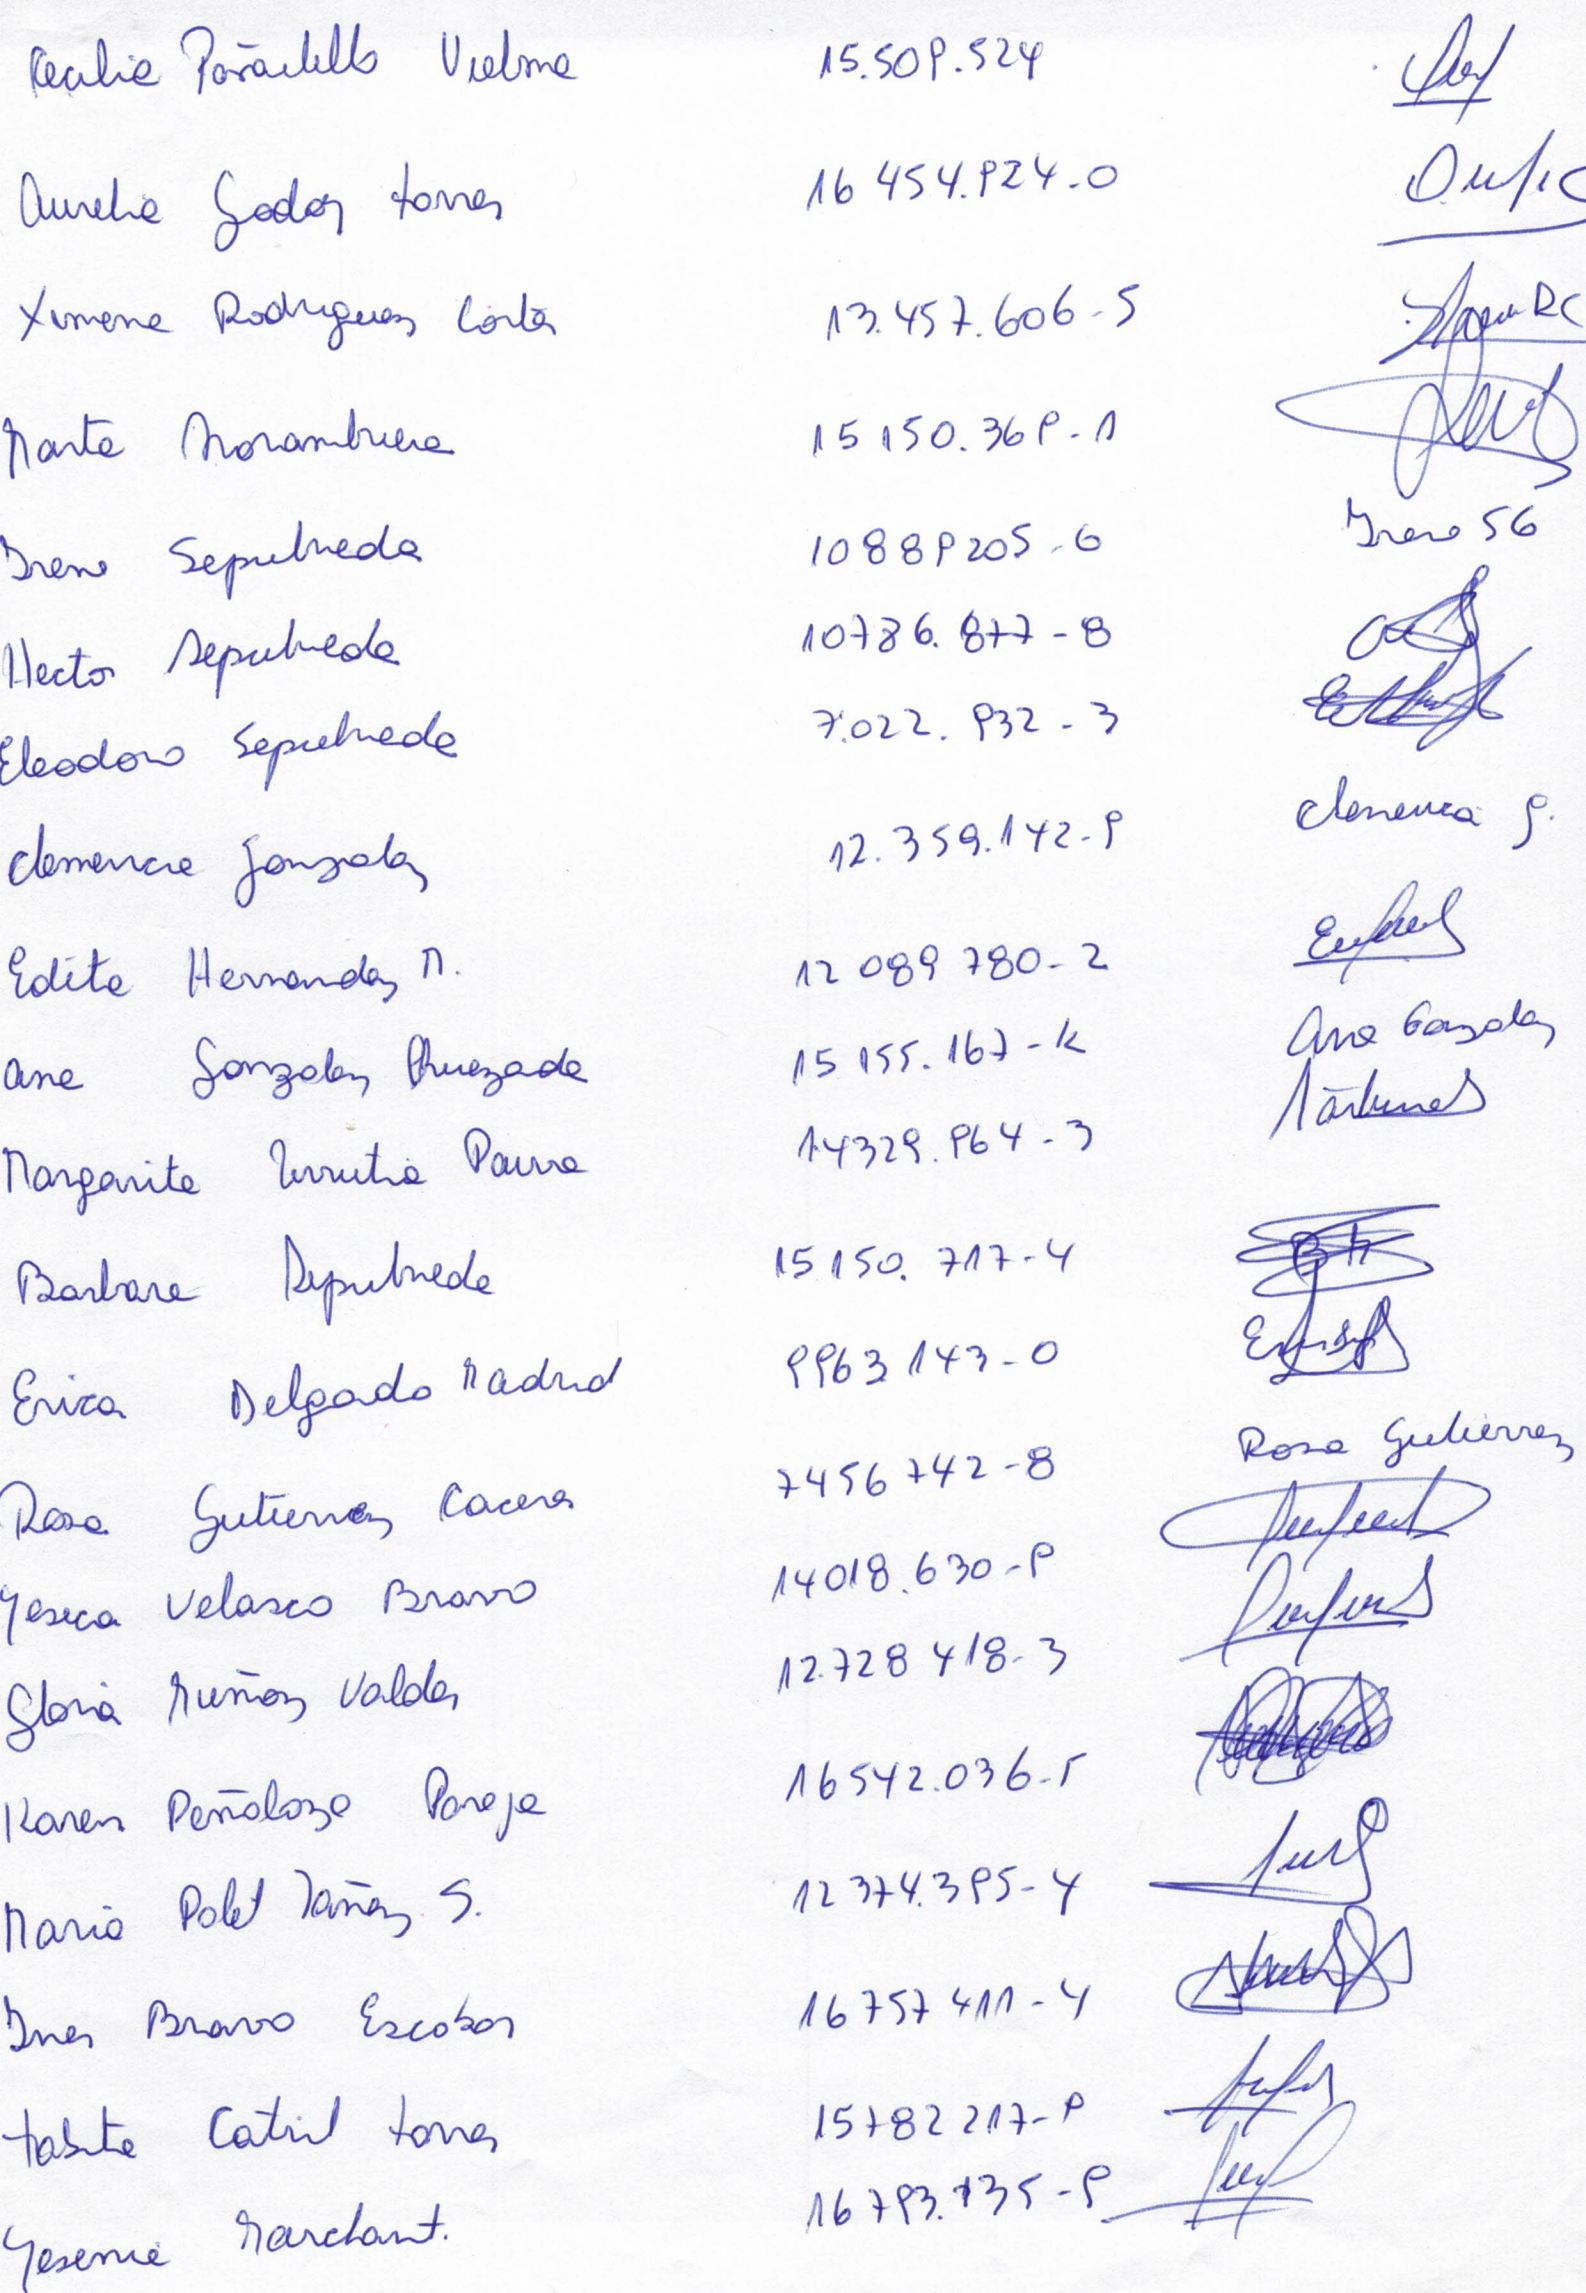 Cecilia Paradello Vielma 15.509.524
Aurelia Godoy Torres 16 454.924-0
Ximena Rodriguez Cortés 13.457.606-5
Marta Norambuena 15 150.369-1
Irene Sepulveda 10889205-6 Irene SG
Hector Sepulveda 10786.877-8
Eleodoro Sepulveda 7.022.932-3
Clemencia Gonzalez 12.359.142-9 Clemencia G.
Edita Hernandez M. 12 089 780-2
Ana Gonzalez Quezada 15 155.167-K Ana Gonzalez
Margarita Urrutia Parra 14329.964-3
Barbara Sepulveda 15 150.717-4
Erica Delgado Madrid 9963 143-0
Rosa Gutierrez Caceres 7456 742-8 Rosa Gutierrez
Yesica Velasco Bravo 14018.630-9
Gloria Muñoz Valdes 12.728 418-3
Karen Peñaloza Pareja 16542.036-
Maria Polet Yañez S. 12 374.395-4
Ines Bravo Escobar 16 757 411-4
Tabita Catril Torres 15782 217-9
Yesenia Marchant. 16 793.135-9